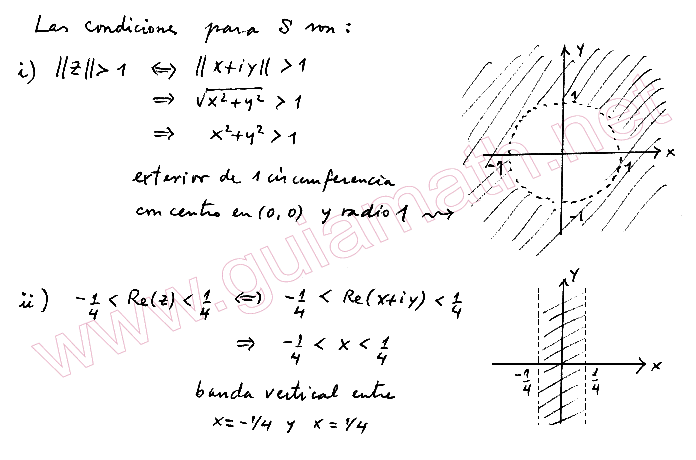 Las condiciones para S son:
i) ||z|| > 1 ⇔ ||x+iy|| > 1
⇒ √x²+y² > 1
⇒ x²+y² > 1
exterior de 1 circunferencia
con centro en (0,0) y radio 1 ⇝
y
1
-1
1
x
-1
ii) -1/4 < Re(z) < 1/4 ⇔ -1/4 < Re(x+iy) < 1/4
⇒ -1/4 < x < 1/4
banda vertical entre
x=-1/4 y x=1/4
y
x
-1/4
1/4
www.guiamath.net